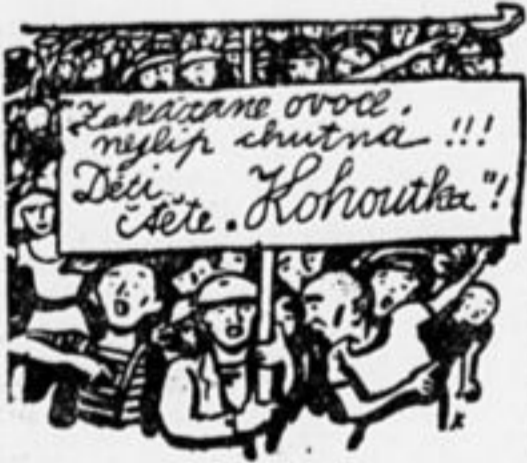 Zakázané ovoce.
nejlíp chutná !!!
Děti
čtěte „Kohoutka"!